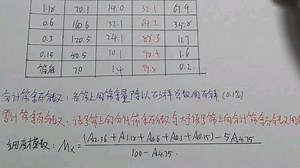 1.18 70.1 14.0 32.1 67.9
0.6 160.6 32.1 64.2 35.8
0.3 120.5 24.1 88.3 11.7
0.15 50.5 10.1 98.4 1.6
筛底 7.0 1.4 99.8 0.2
分计筛余百分数：各筛上的筛余量除以试样总数的百分率 (0.1%)
累计筛余百分数：该号筛上的分计筛余百分数与大于该号筛的各分计筛余百分数
细度模数：Mx = (A2.36 + A1.18 + A0.6 + A0.3 + A0.15) - 5A4.75
100 - A4.75